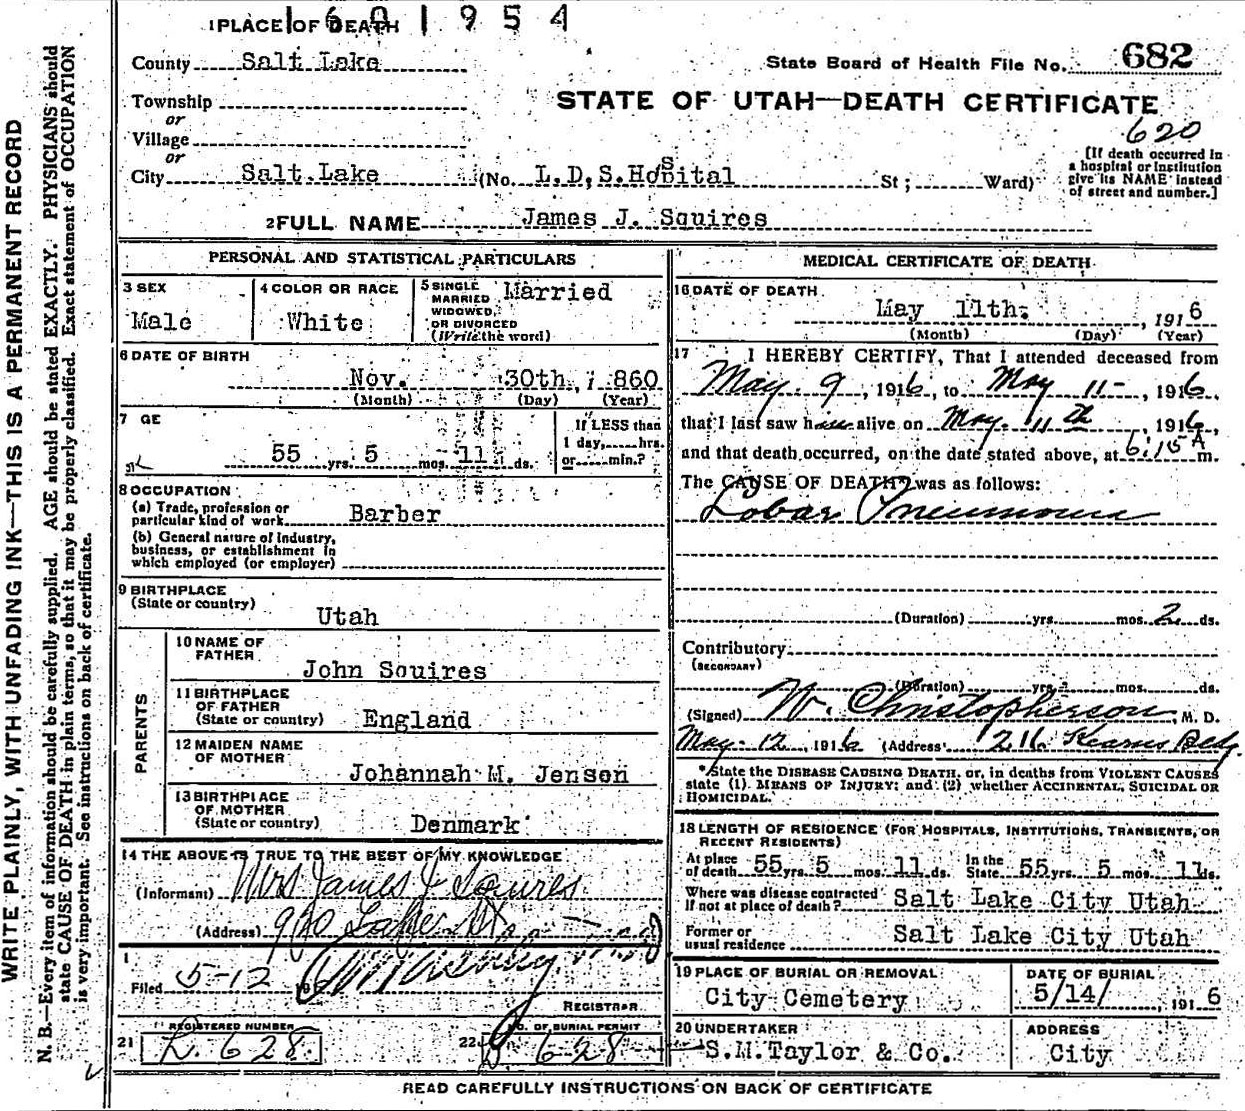 1 PLACE OF DEATH
1601954
County Salt Lake
State Board of Health File No. 682
Township
or
STATE OF UTAH—DEATH CERTIFICATE
Village
620
or
City Salt Lake (No. L.D.S. Hospital St; Ward)
[If death occurred in
a hospital or institution
give its NAME instead
of street and number.]
2 FULL NAME James J. Squires
PERSONAL AND STATISTICAL PARTICULARS
3 SEX
Male
4 COLOR OR RACE
White
5 SINGLE
MARRIED
WIDOWED,
OR DIVORCED
(Write the word)
Married
6 DATE OF BIRTH
Nov. 30th, 1860
(Month) (Day) (Year)
7 GE
55 yrs. 5 mos. 11 ds.
If LESS than
1 day, hrs.
or min.?
8 OCCUPATION
(a) Trade, profession or
particular kind of work Barber
(b) General nature of Industry,
business, or establishment in
which employed (or employer)
9 BIRTHPLACE
(State or country)
Utah
PARENTS
10 NAME OF
FATHER
John Squires
11 BIRTHPLACE
OF FATHER
(State or country) England
12 MAIDEN NAME
OF MOTHER
Johannah M. Jenson
13 BIRTHPLACE
OF MOTHER
(State or country) Denmark
14 THE ABOVE IS TRUE TO THE BEST OF MY KNOWLEDGE
(Informant) Mrs James J Squires
(Address)
Filed 5-12
REGISTRAR
21 REGISTERED NUMBER
628
22 NO. OF BURIAL PERMIT
628
MEDICAL CERTIFICATE OF DEATH
16 DATE OF DEATH
May 11th. , 1916
(Month) (Day) (Year)
17 I HEREBY CERTIFY, That I attended deceased from
May 9, 1916, to May 11 - , 1916,
that I last saw h alive on May 11th , 1916,
and that death occurred, on the date stated above, at 6:15 A m.
The CAUSE OF DEATH* was as follows:
Lobar Pneumonia
(Duration) yrs. mos. 2 ds.
Contributory
(SECONDARY)
(Duration) yrs. mos. ds.
(Signed) W. Christopherson, M. D.
May 12, 1916 (Address 216 Kearns Bldg.
*State the DISEASE CAUSING DEATH, or, in deaths from VIOLENT CAUSES
state (1) MEANS OF INJURY; and (2) whether ACCIDENTAL, SUICIDAL OR
HOMICIDAL.
18 LENGTH OF RESIDENCE (FOR HOSPITALS, INSTITUTIONS, TRANSIENTS, OR
RECENT RESIDENTS)
At place
of death 55 yrs. 5 mos. 11 ds. In the
State 55 yrs. 5 mos. 11 ds.
Where was disease contracted
If not at place of death? Salt Lake City Utah
Former or
usual residence Salt Lake City Utah
19 PLACE OF BURIAL OR REMOVAL
City Cemetery
DATE OF BURIAL
5/14/ , 1916
20 UNDERTAKER
S.M. Taylor & Co.
ADDRESS
City
READ CAREFULLY INSTRUCTIONS ON BACK OF CERTIFICATE
WRITE PLAINLY, WITH UNFADING INK—THIS IS A PERMANENT RECORD
N. B.—Every item of information should be carefully supplied. AGE should be stated EXACTLY. PHYSICIANS should
state CAUSE OF DEATH in plain terms, so that it may be properly classified. Exact statement of OCCUPATION
is very important. See instructions on back of certificate.